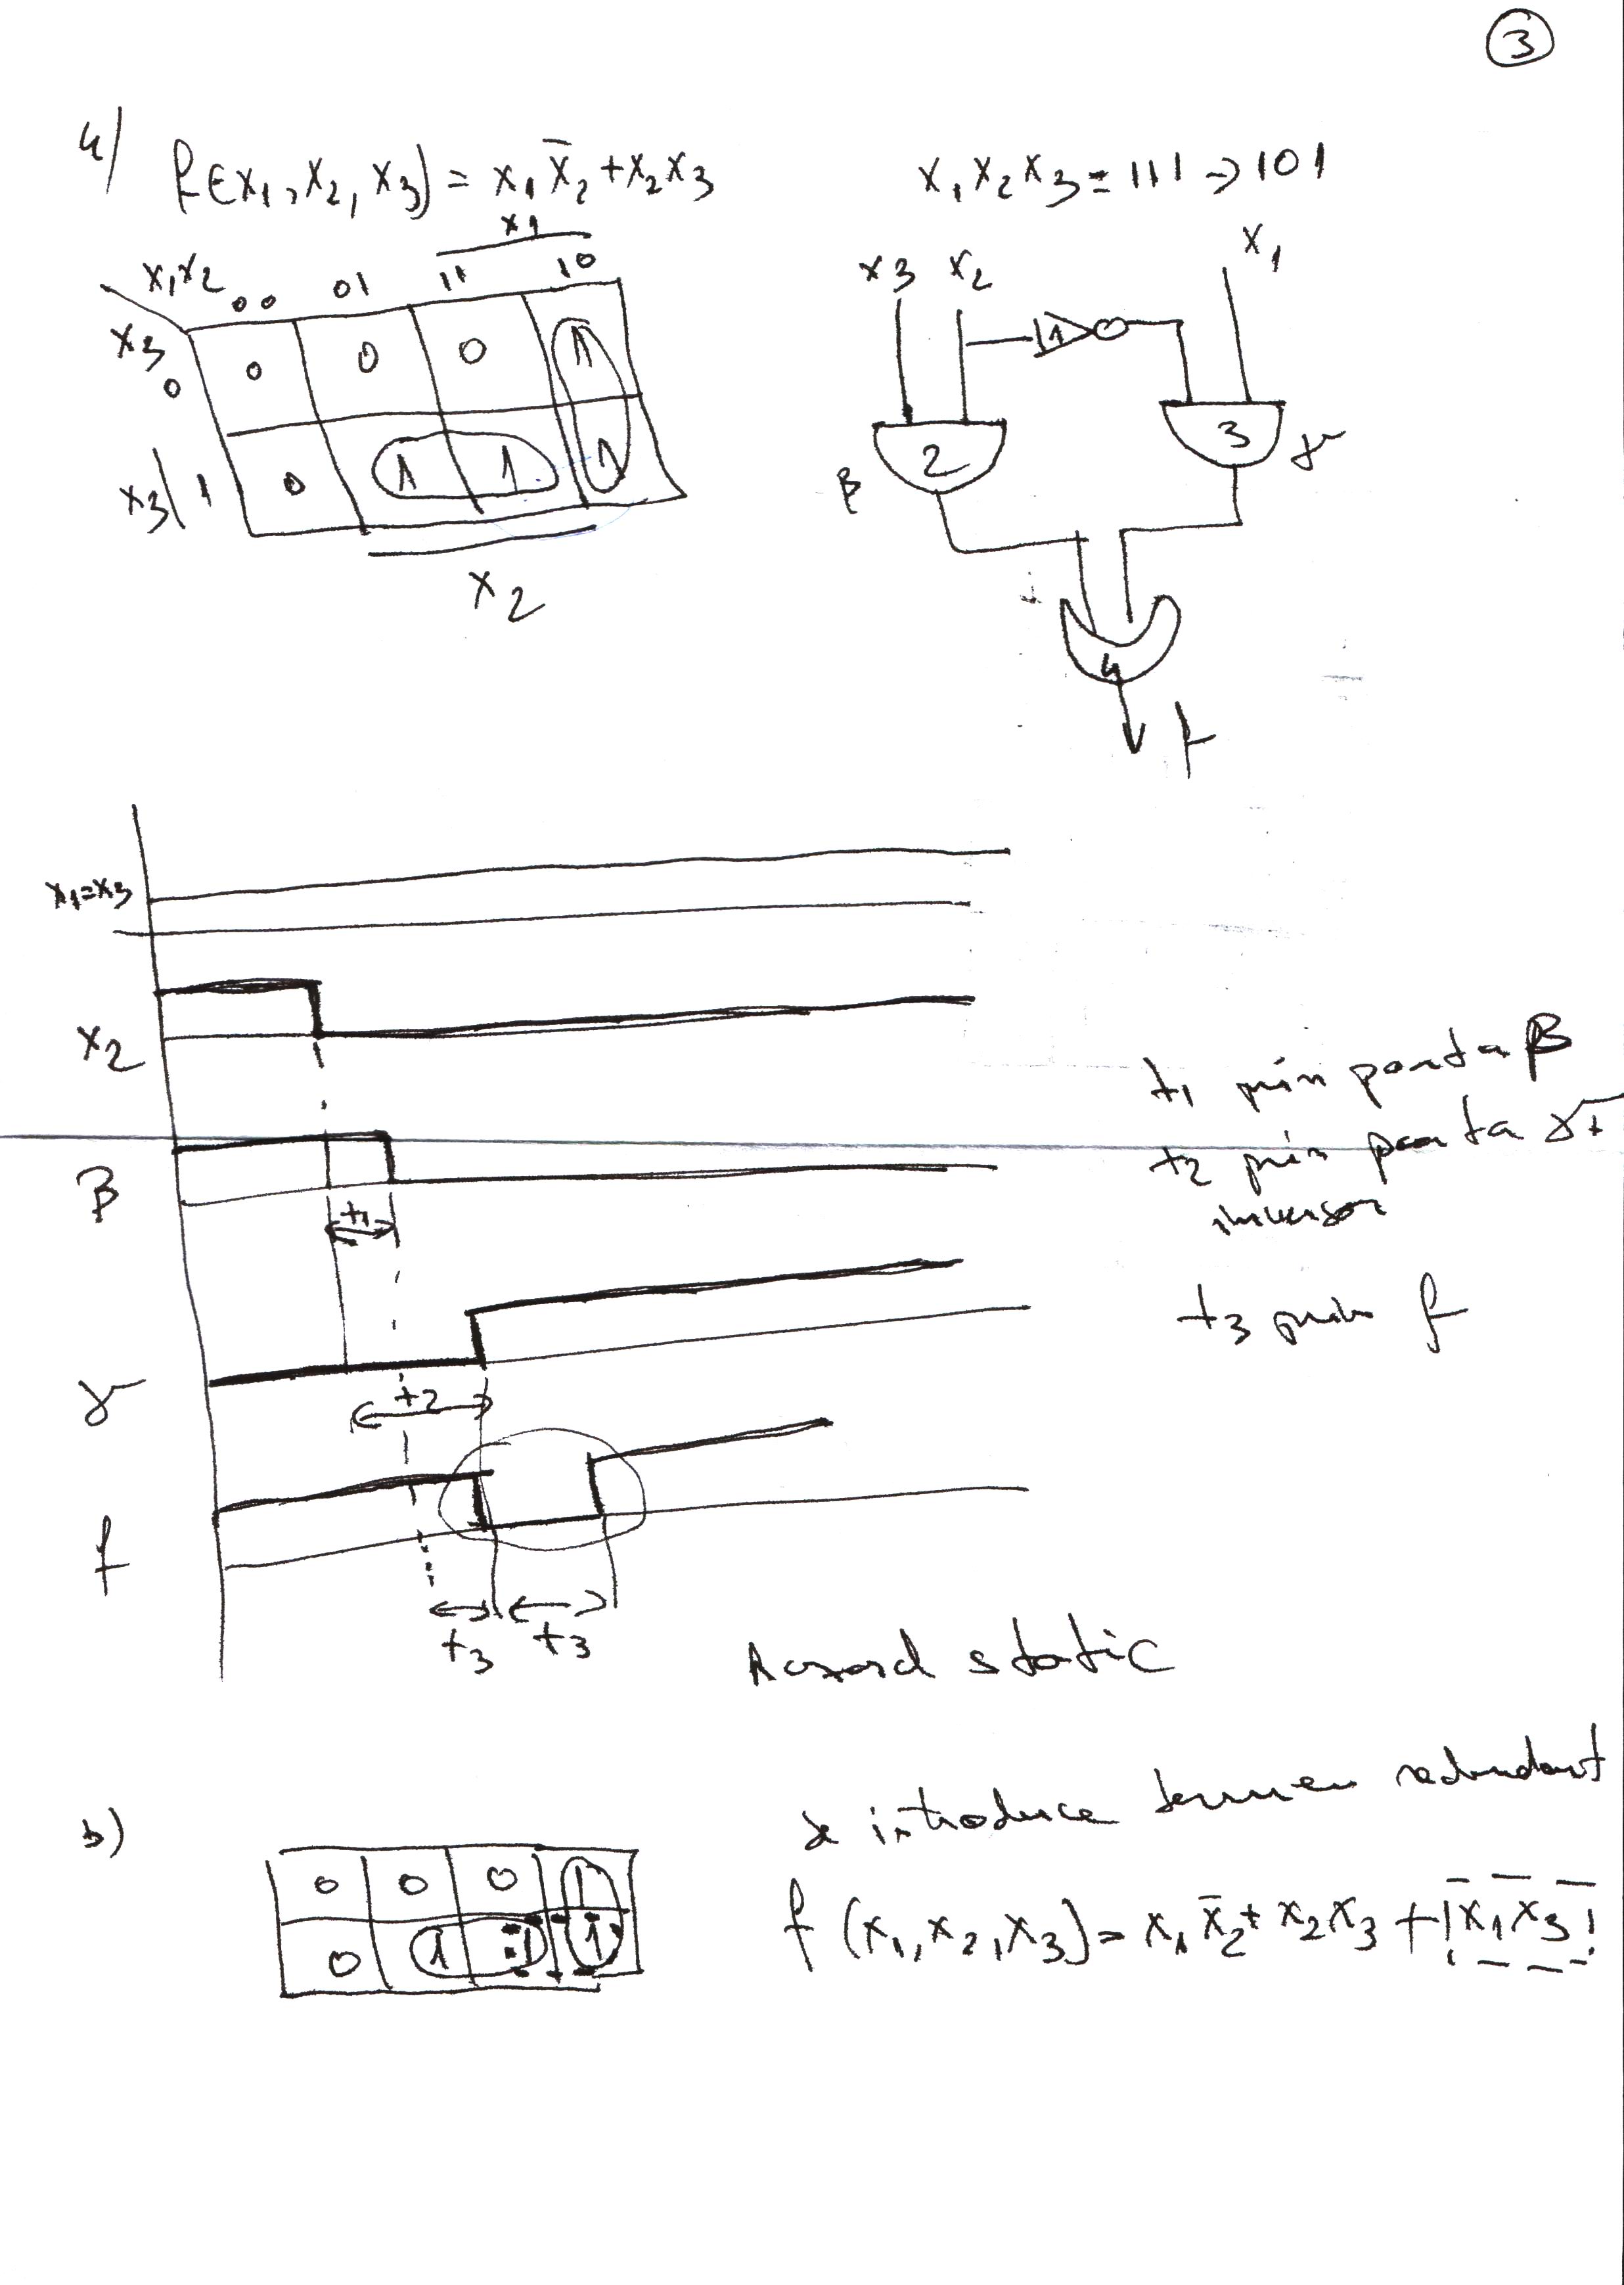 3
4) f(x1, x2, x3) = x1x̄2 + x2x3
x1x2x3 = 111 → 101
x1
x1x2 00 01 11 10
x3
0 0 0 0 1
x3 1 0 1 1 1
x2
x3 x2 x1
1
2 3
β γ
4
f
x1=x3
x2
β
t1
γ
t2
f
t3 t3
t1 prin poarta β
t2 prin poarta γ +
inversor
t3 prin f
Hazard static
b)
0 0 0 1
0 1 1 1
se introduce termen redundant
f (x1, x2, x3) = x1x̄2 + x2x3 + x1x3